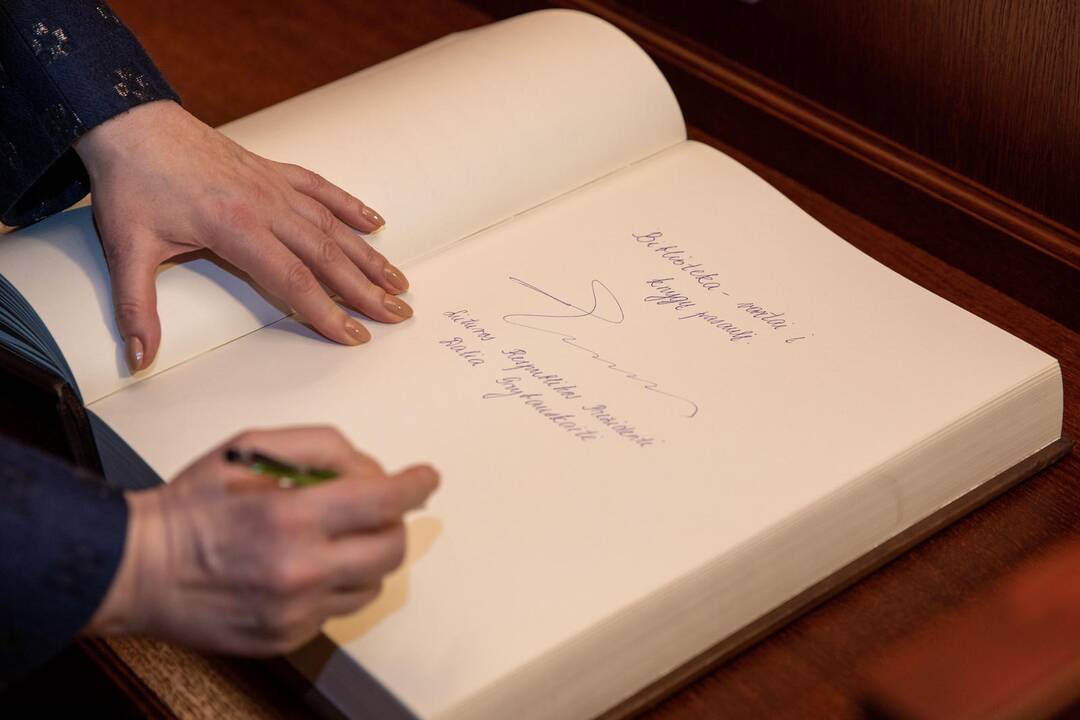 Biblioteka - vartai į
knygų pasaulį.
Lietuvos Respublikos Prezidentė
Dalia Grybauskaitė